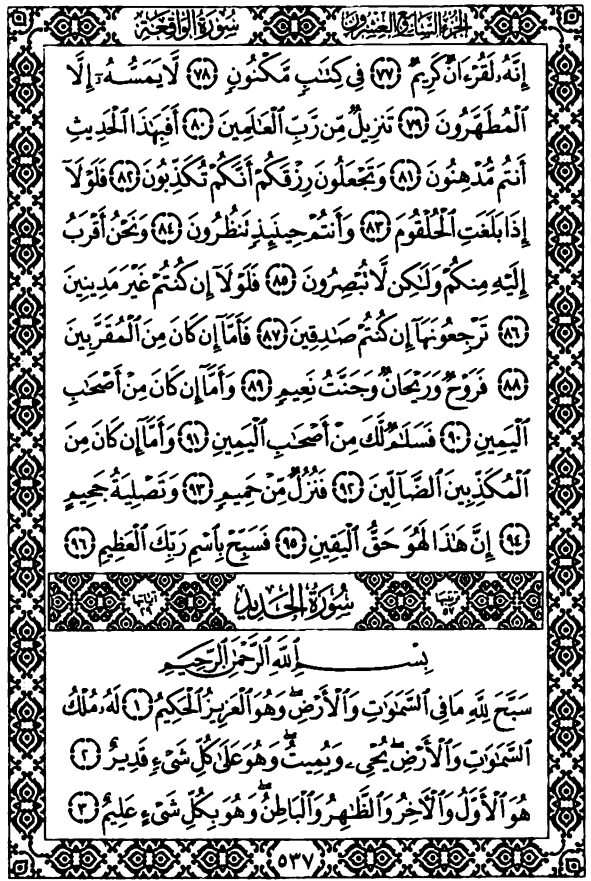 سُورَةُ الوَاقِعَة الجزء السابع والعشرون
إِنَّهُۥ لَقُرْءَانٌ كَرِيمٌ ٧٧ فِى كِتَٰبٍ مَّكْنُونٍ ٧٨ لَّا يَمَسُّهُۥٓ إِلَّا
ٱلْمُطَهَّرُونَ ٧٩ تَنزِيلٌ مِّن رَّبِّ ٱلْعَٰلَمِينَ ٨٠ أَفَبِهَٰذَا ٱلْحَدِيثِ
أَنتُم مُّدْهِنُونَ ٨١ وَتَجْعَلُونَ رِزْقَكُمْ أَنَّكُمْ تُكَذِّبُونَ ٨٢ فَلَوْلَآ
إِذَا بَلَغَتِ ٱلْحُلْقُومَ ٨٣ وَأَنتُمْ حِينَئِذٍ تَنظُرُونَ ٨٤ وَنَحْنُ أَقْرَبُ
إِلَيْهِ مِنكُمْ وَلَٰكِن لَّا تُبْصِرُونَ ٨٥ فَلَوْلَآ إِن كُنتُمْ غَيْرَ مَدِينِينَ
٨٦ تَرْجِعُونَهَآ إِن كُنتُمْ صَٰدِقِينَ ٨٧ فَأَمَّآ إِن كَانَ مِنَ ٱلْمُقَرَّبِينَ
٨٨ فَرَوْحٌ وَرَيْحَانٌ وَجَنَّتُ نَعِيمٍ ٨٩ وَأَمَّآ إِن كَانَ مِنْ أَصْحَٰبِ
ٱلْيَمِينِ ٩٠ فَسَلَٰمٌ لَّكَ مِنْ أَصْحَٰبِ ٱلْيَمِينِ ٩١ وَأَمَّآ إِن كَانَ مِنَ
ٱلْمُكَذِّبِينَ ٱلضَّآلِّينَ ٩٢ فَنُزُلٌ مِّنْ حَمِيمٍ ٩٣ وَتَصْلِيَةُ جَحِيمٍ
٩٤ إِنَّ هَٰذَا لَهُوَ حَقُّ ٱلْيَقِينِ ٩٥ فَسَبِّحْ بِٱسْمِ رَبِّكَ ٱلْعَظِيمِ ٩٦
ترتيبها ٥٧ سُورَةُ الحَدِيدِ آياتها ٢٩
بِسْمِ ٱللَّهِ ٱلرَّحْمَٰنِ ٱلرَّحِيمِ
سَبَّحَ لِلَّهِ مَا فِى ٱلسَّمَٰوَٰتِ وَٱلْأَرْضِ ۖ وَهُوَ ٱلْعَزِيزُ ٱلْحَكِيمُ ١ لَهُۥ مُلْكُ
ٱلسَّمَٰوَٰتِ وَٱلْأَرْضِ ۖ يُحْىِۦ وَيُمِيتُ ۖ وَهُوَ عَلَىٰ كُلِّ شَىْءٍ قَدِيرٌ ٢
هُوَ ٱلْأَوَّلُ وَٱلْءَاخِرُ وَٱلظَّٰهِرُ وَٱلْبَاطِنُ ۖ وَهُوَ بِكُلِّ شَىْءٍ عَلِيمٌ ٣
٥٣٧